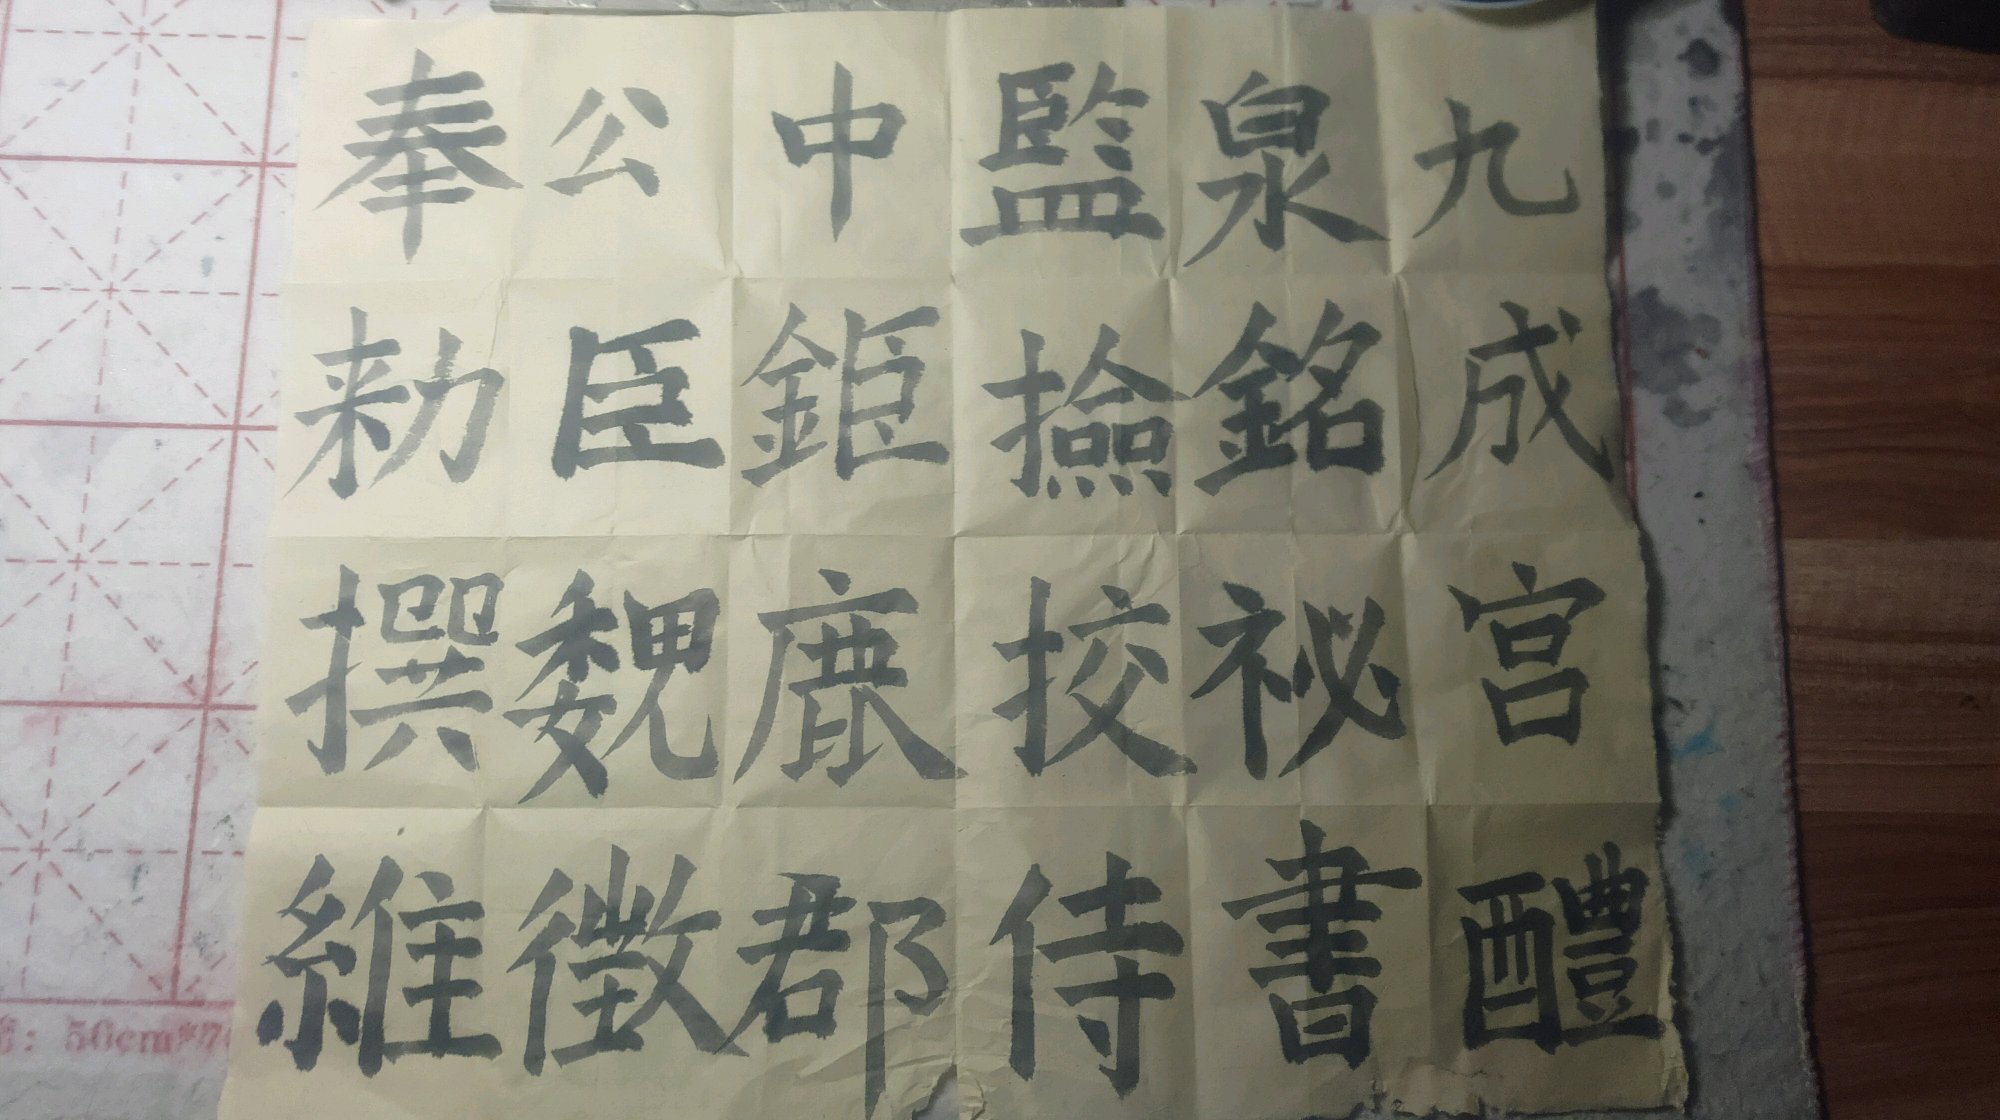 九成宫醴
泉銘祕書
監撿挍侍
中鉅鹿郡
公臣魏徵
奉勑撰維
50cm*7